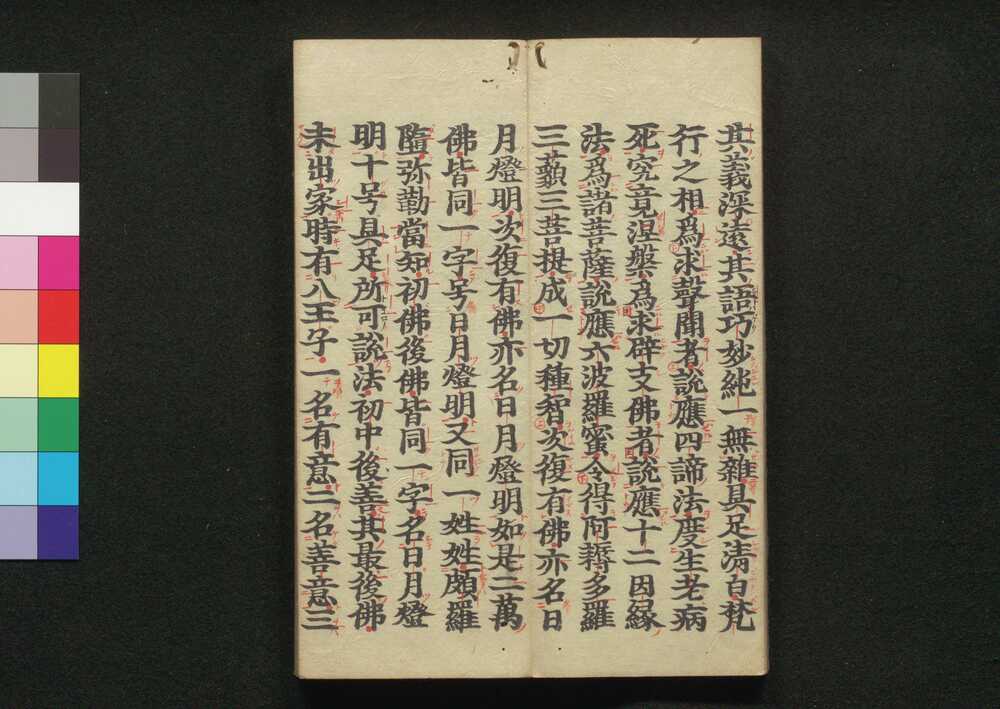 其義深遠其語巧妙純一無雜具足清白梵
行之相爲求聲聞者說應四諦法度生老病
死究竟涅槃爲求辟支佛者說應十二因縁
法爲諸菩薩說應六波羅蜜令得阿耨多羅
三藐三菩提成一切種智次復有佛亦名日
月燈明次復有佛亦名日月燈明如是二萬
佛皆同一字号日月燈明又同一姓姓頗羅
墮弥勒當知初佛後佛皆同一字名日月燈
明十号具足所可說法初中後善其最後佛
未出家時有八王子一名有意二名善意三